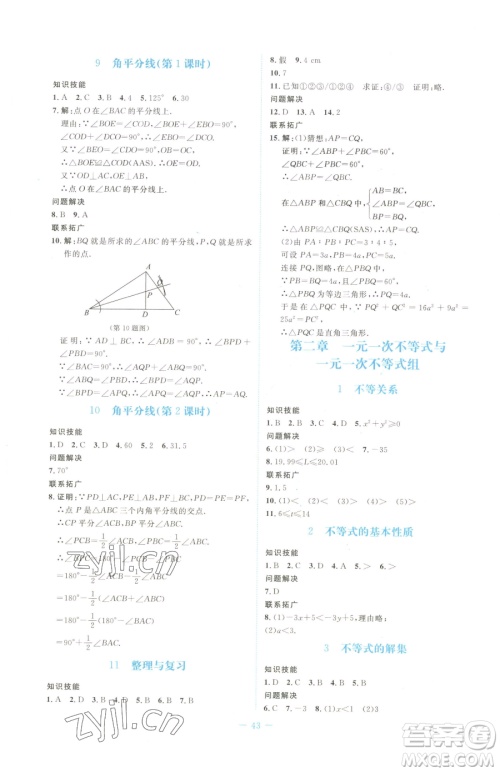 9　角平分线(第1课时)
知识技能
1. A　2. C　3. B　4. D　5. 125°　6. 30
7. 解:点O在∠BAC的平分线上.
理由:∵∠BOE+∠BOF=90°,
∠COD+∠COF=90°,∠BOF=∠COF,
∴∠BOE=∠COD.
又∵∠BEO=∠CDO=90°,
∴△BOE≌△COD(AAS).∴OE=OD.
又∵OD⊥AC,OE⊥AB,
∴点O在∠BAC的平分线上.
问题解决
8. B　9. A
联系拓广
10. 解:BQ就是所求的∠ABC的平分线,P,Q就是所求
作的点.
A
B
D
C
(第10题图)
证明:∵AD⊥BC,∴∠ADB=90°.
∴∠BPD+∠PBD=90°.
∵∠BAC=90°,∴∠AQP+∠ABQ=90°.
∵∠ABQ=∠PBD,∴∠BPD=∠AQP.
∵∠BPD=∠APQ,∴∠APQ=∠AQP.
∴AP=AQ.
10　角平分线(第2课时)
知识技能
1. D　2. C　3. A　4. 60　5. 2　6. 31.5
问题解决
7. 70°
联系拓广
8. 证明:∵PD⊥AC,PE⊥AB,PD=PF=PE,
∴点P是△ABC三个内角平分线的交点.
∴∠PCB=1/2∠ACB,∠PBC=1/2∠ABC.
∴∠BPC=180°-(∠PCB+∠PBC)
=180°-1/2(∠ACB+∠ABC)
=180°-1/2(180°-∠BAC)
=90°+1/2∠BAC.
11　整理与复习
知识技能
1. A　2. C　3. D　4. D　5. A　6. D　7. C
8. 假　9. 4 cm
10. 7
11. 已知①②③/①②④　求证:④/③　证明:略.
问题解决
12. D　13. A　14. 2
联系拓广
15. 解:(1)猜想:AP=CQ.
证明:∵∠ABP+∠PBC=60°,
∠QBC+∠PBC=60°,
∴∠ABP=∠QBC.
在△ABP和△CBQ中,
AB=BC,
∠ABP=∠CBQ,
BP=BQ,
∴△ABP≌△CBQ(SAS).∴AP=CQ.
(2)由PA∶PB∶PC=3∶4∶5,
可设PA=3a,PB=4a,PC=5a.
连接PQ,如图.
∴△PBQ为等边三角形.∴PQ=4a.
于是在△PQC中,PQ²+QC²=16a²+9a²=
25a²=PC²,
∴△PQC是直角三角形.
第二章　一元一次不等式与
一元一次不等式组
1　不等关系
知识技能
1. C　2. B　3. A　4. D　5. x²+y²≥0
问题解决
6. (1)>　(2)<　(3)>　(4)<　(5)>　7. >
8. 19.99≤L≤20.01
联系拓广
9. 1.5
10. (1)>　(2)>　(3)<　(4)<
11. 6≤t≤14
2　不等式的基本性质
知识技能
1. B　2. D　3. D　4. (1)>　(2)>　(3)<　5. >
6. <　7. C
问题解决
8. D　9. A
联系拓广
10. (1)-3x+5<-3y+5,理由略;
(2)a<3.
3　不等式的解集
知识技能
1. D　2. A　3. B　4. D　5. A
问题解决
6. C　7. x<1　8. (1)x<1　(2)x>3
43
zyjl.cn
zyjl.cn
答案圈
MXQE.COM